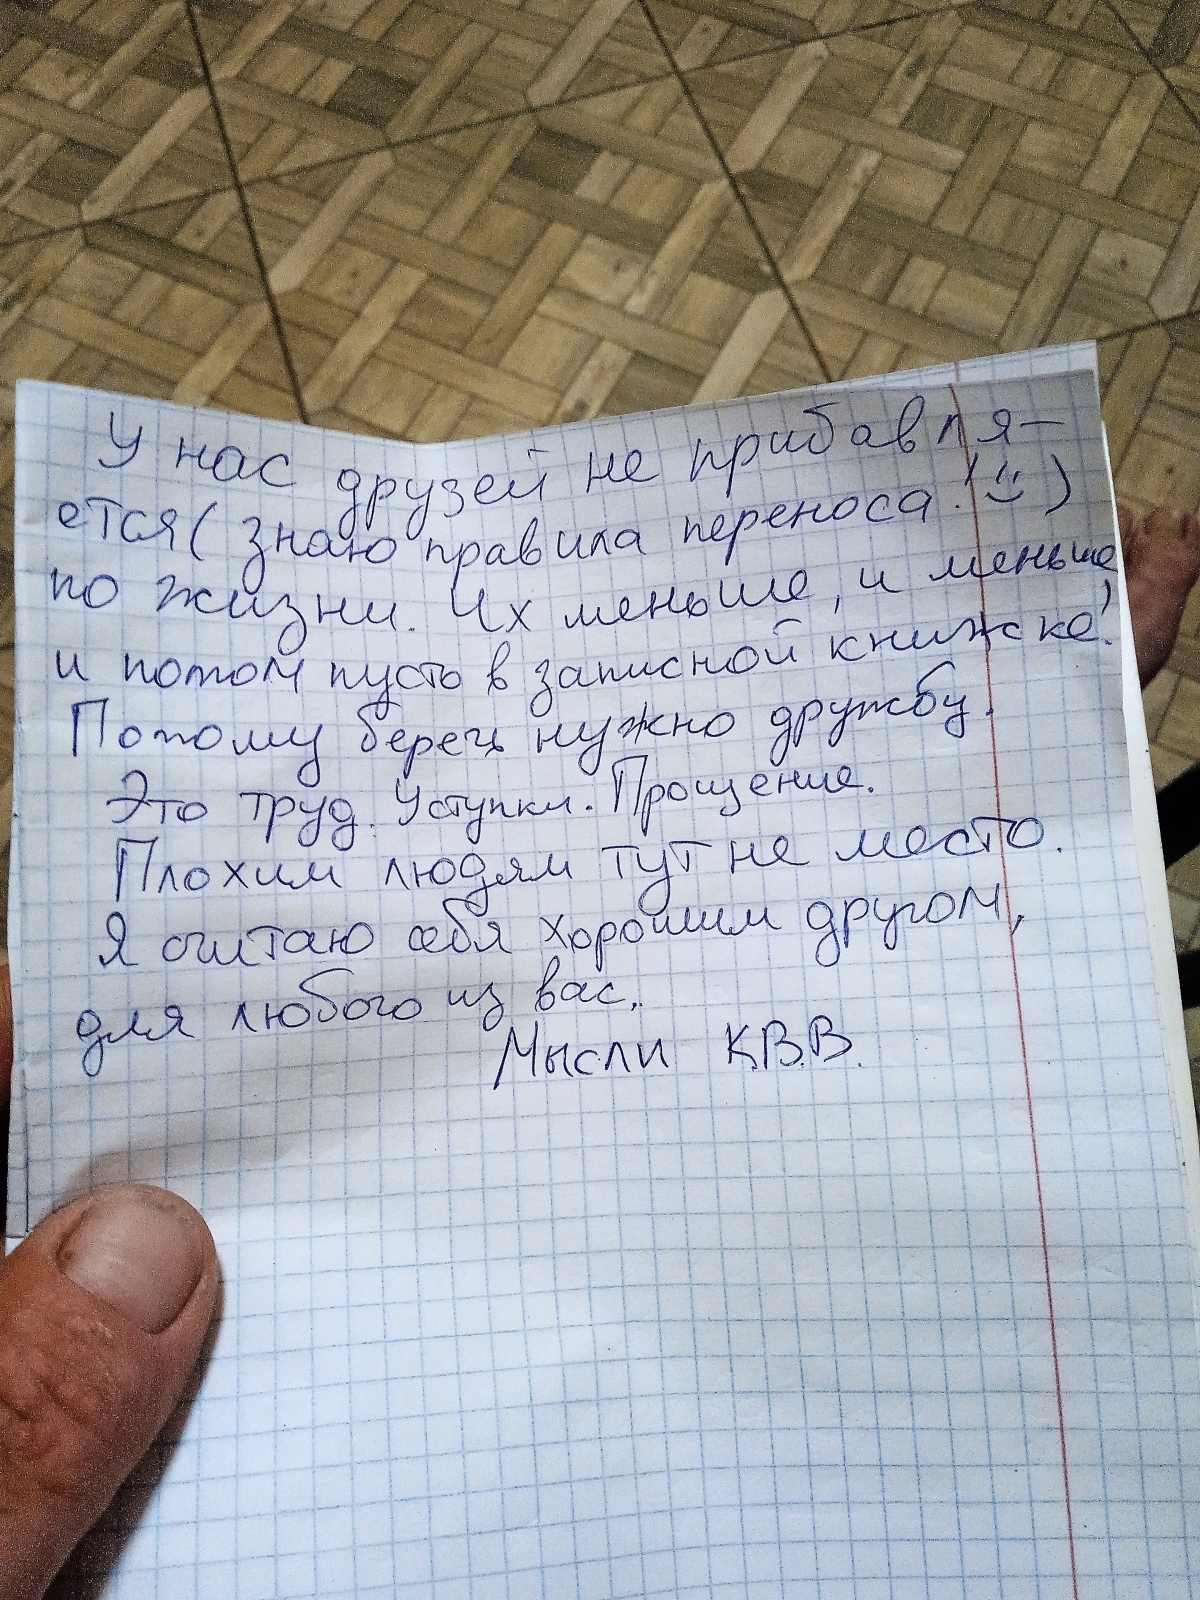 У нас друзей не прибавля-
ется (знаю правила переноса! ツ)
по жизни. Их меньше, и меньше
и потом пусто в записной книжке!
Потому беречь нужно дружбу.
Это труд. Уступки. Прощение.
Плохим людям тут не место.
Я считаю себя хорошим другом,
для любого из вас.
Мысли К.В.В.